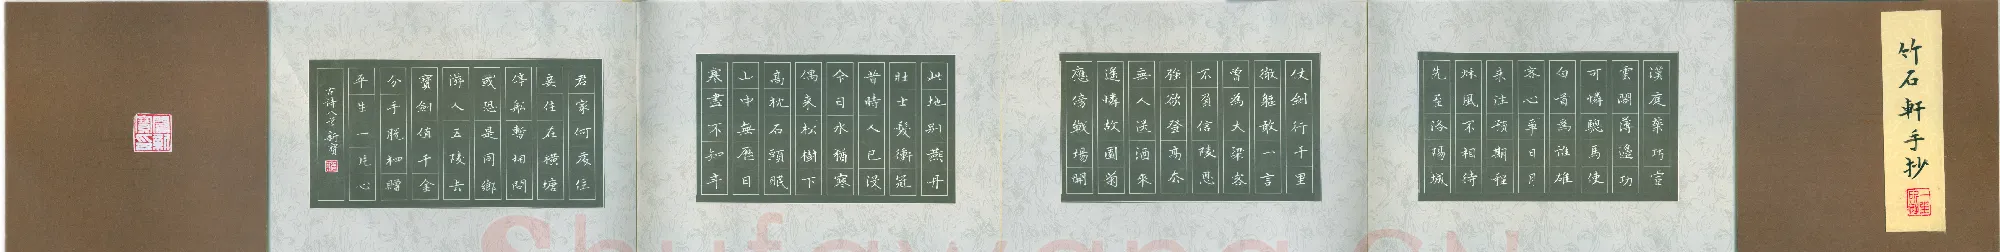 竹石軒手抄
漢庭榮巧宦
雲閣薄邊功
可憐驄馬使
白首為誰雄
客心爭日月
來往預期程
秋風不相待
先至洛陽城
仗劍行千里
微軀敢一言
曾為大梁客
不負信陵恩
強欲登高去
無人送酒來
遙憐故園菊
應傍戰場開
此地別燕丹
壯士髮衝冠
昔時人已沒
今日水猶寒
偶來松樹下
高枕石頭眠
山中無曆日
寒盡不知年
君家何處住
妾住在橫塘
停船暫借問
或恐是同鄉
游人五陵去
寶劍值千金
分手脫相贈
平生一片心
古詩八首 新寶
Shufawang.CN